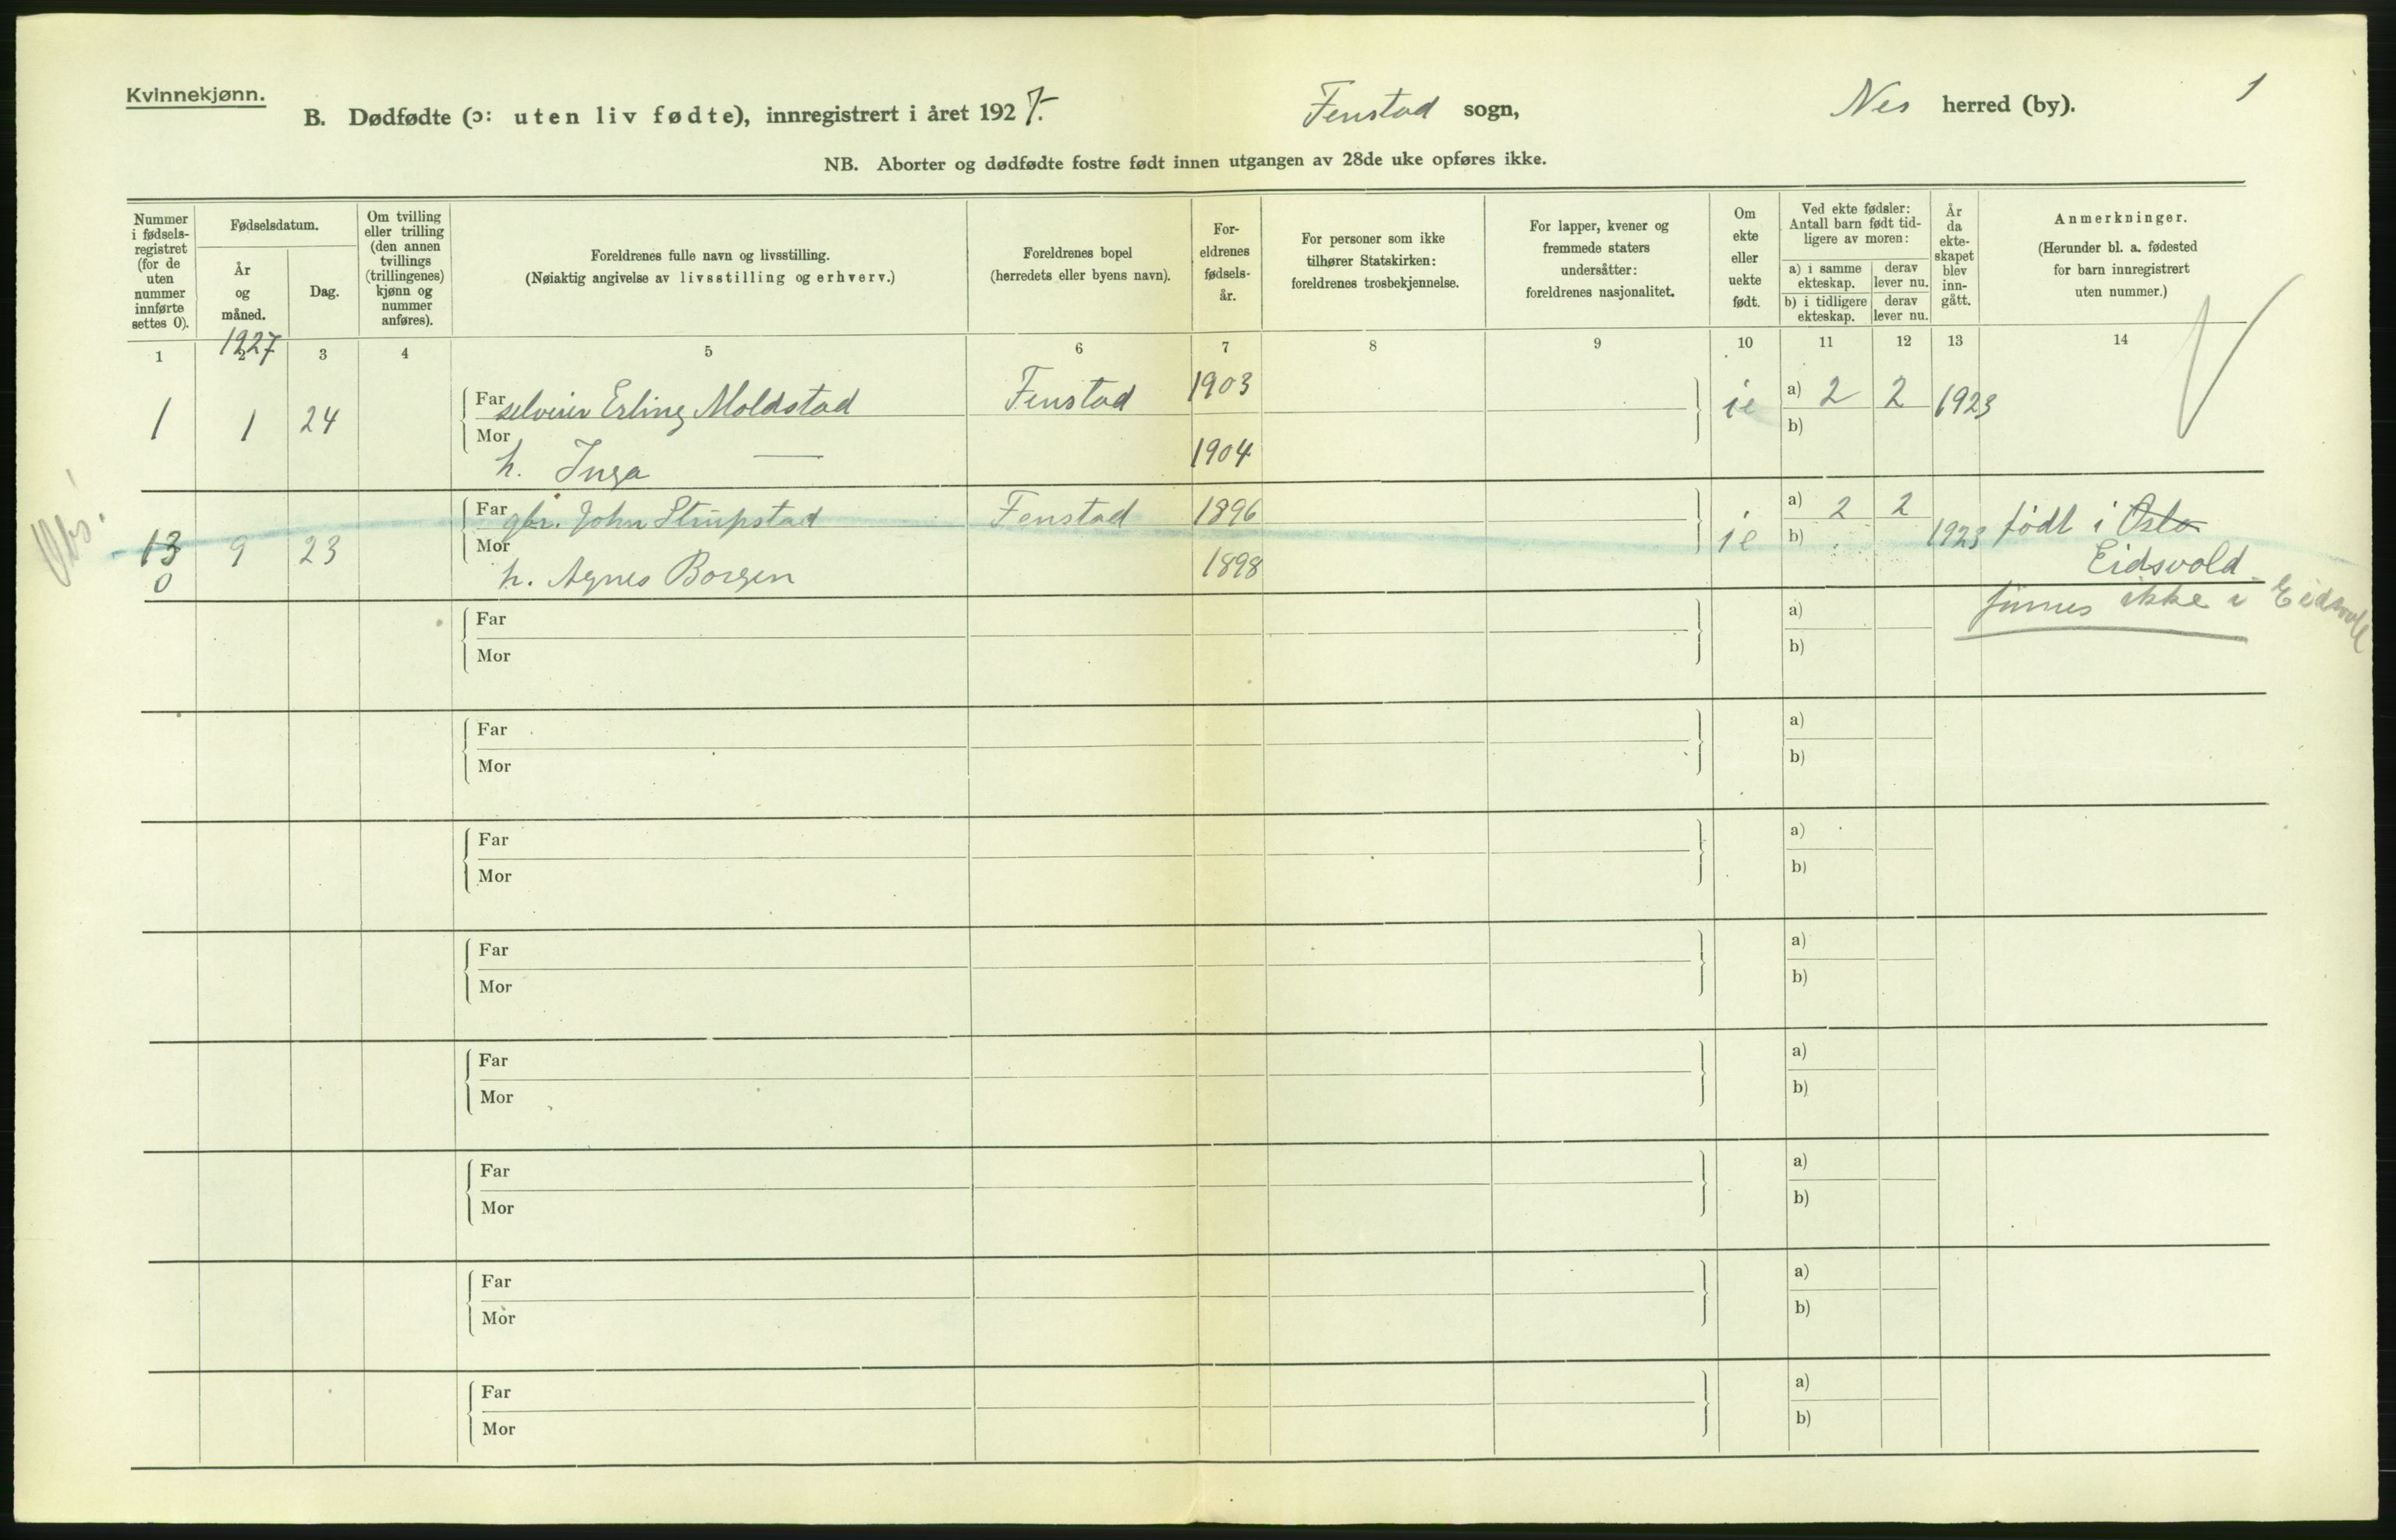 Kvinnekjønn.
B. Dødfødte (ɔ: uten liv fødte), innregistrert i året 1927.
Fenstad sogn,
Nes herred (by).
1
NB. Aborter og dødfødte fostre født innen utgangen av 28de uke opføres ikke.
Nummer i fødsels-registret (for de uten nummer innførte settes 0).
Fødselsdatum.
År og måned.
Dag.
Om tvilling eller trilling (den annen tvillings (trillingenes) kjønn og nummer anføres).
Foreldrenes fulle navn og livsstilling.
(Nøiaktig angivelse av livsstilling og erhverv.)
Foreldrenes bopel
(herredets eller byens navn).
For-eldrenes fødsels-år.
For personer som ikke tilhører Statskirken: foreldrenes trosbekjennelse.
For lapper, kvener og fremmede staters undersåtter: foreldrenes nasjonalitet.
Om ekte eller uekte født.
Ved ekte fødsler: Antall barn født tid-ligere av moren:
a) i samme ekteskap.
derav lever nu.
b) i tidligere ekteskap.
derav lever nu.
År da ekte-skapet blev inn-gått.
Anmerkninger.
(Herunder bl. a. fødested for barn innregistrert uten nummer.)
1 2 3 4 5 6 7 8 9 10 11 12 13 14
1927
1 1 24 Far selveier Erling Moldstad Fenstad 1903 ie a) 2 2 1923
Mor b)
h. Inga — 1904
Obs!
13 9 23 Far gbr. John Strupstad Fenstad 1896 ie a) 2 2 1923 født i Oslo
Mor b) Eidsvold
0 h. Agnes Borgen 1898
finnes ikke i Eidsvoll
Far a)
Mor b)
Far a)
Mor b)
Far a)
Mor b)
Far a)
Mor b)
Far a)
Mor b)
Far a)
Mor b)
Far a)
Mor b)
Far a)
Mor b)